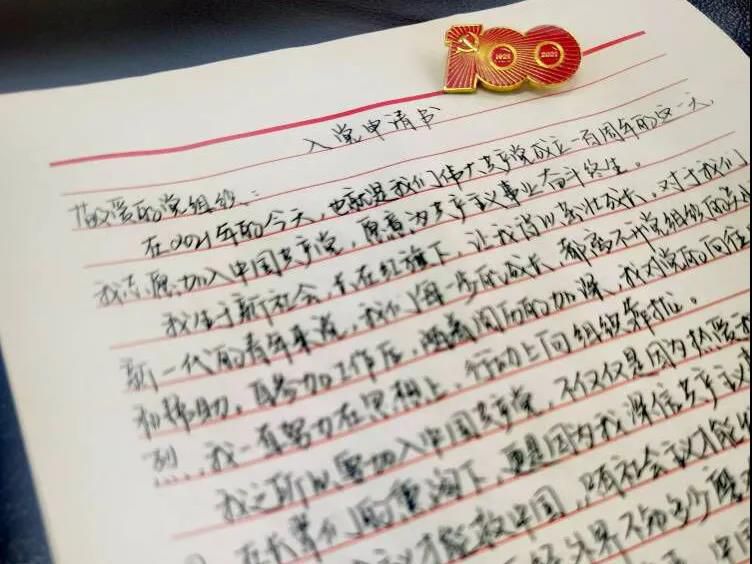 1921 2021
入党申请书
敬爱的党组织：
在2021年的今天，也就是我们伟大共产党成立一百周年的这一天，
我志愿加入中国共产党，愿意为共产主义事业奋斗终生。
我生于新社会，长在红旗下，让我茁壮成长，对于我们
新一代的青年来说，我们每一步的成长，都离不开党组织的
和帮助。参加工作后，随着阅历的加深，我对党的向往
烈，我一直努力在思想上，行动上向组织靠拢。
我之所以要加入中国共产党，不仅仅是因为热爱
在长辈们的熏陶下，更是因为我深信共产主义
才能救中国，只有社会主义才能
外界不知多少
中国